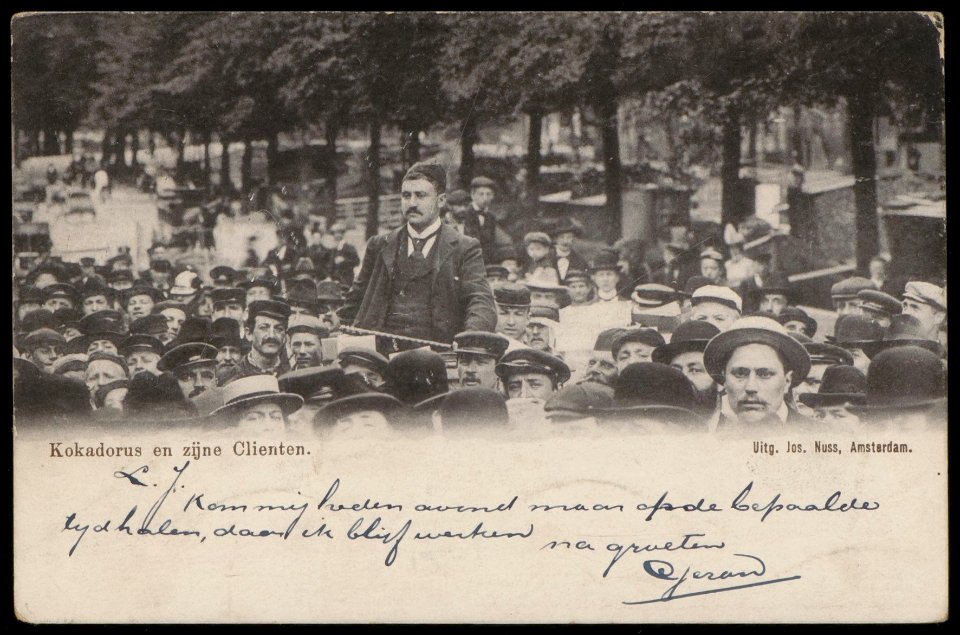 Kokadorus en zijne Clienten.
Uitg. Jos. Nuss, Amsterdam.
L. J.
Kom mij heden avond maar op de bepaalde
tyd halen, daar ik blijf werken na groeten
Gerard